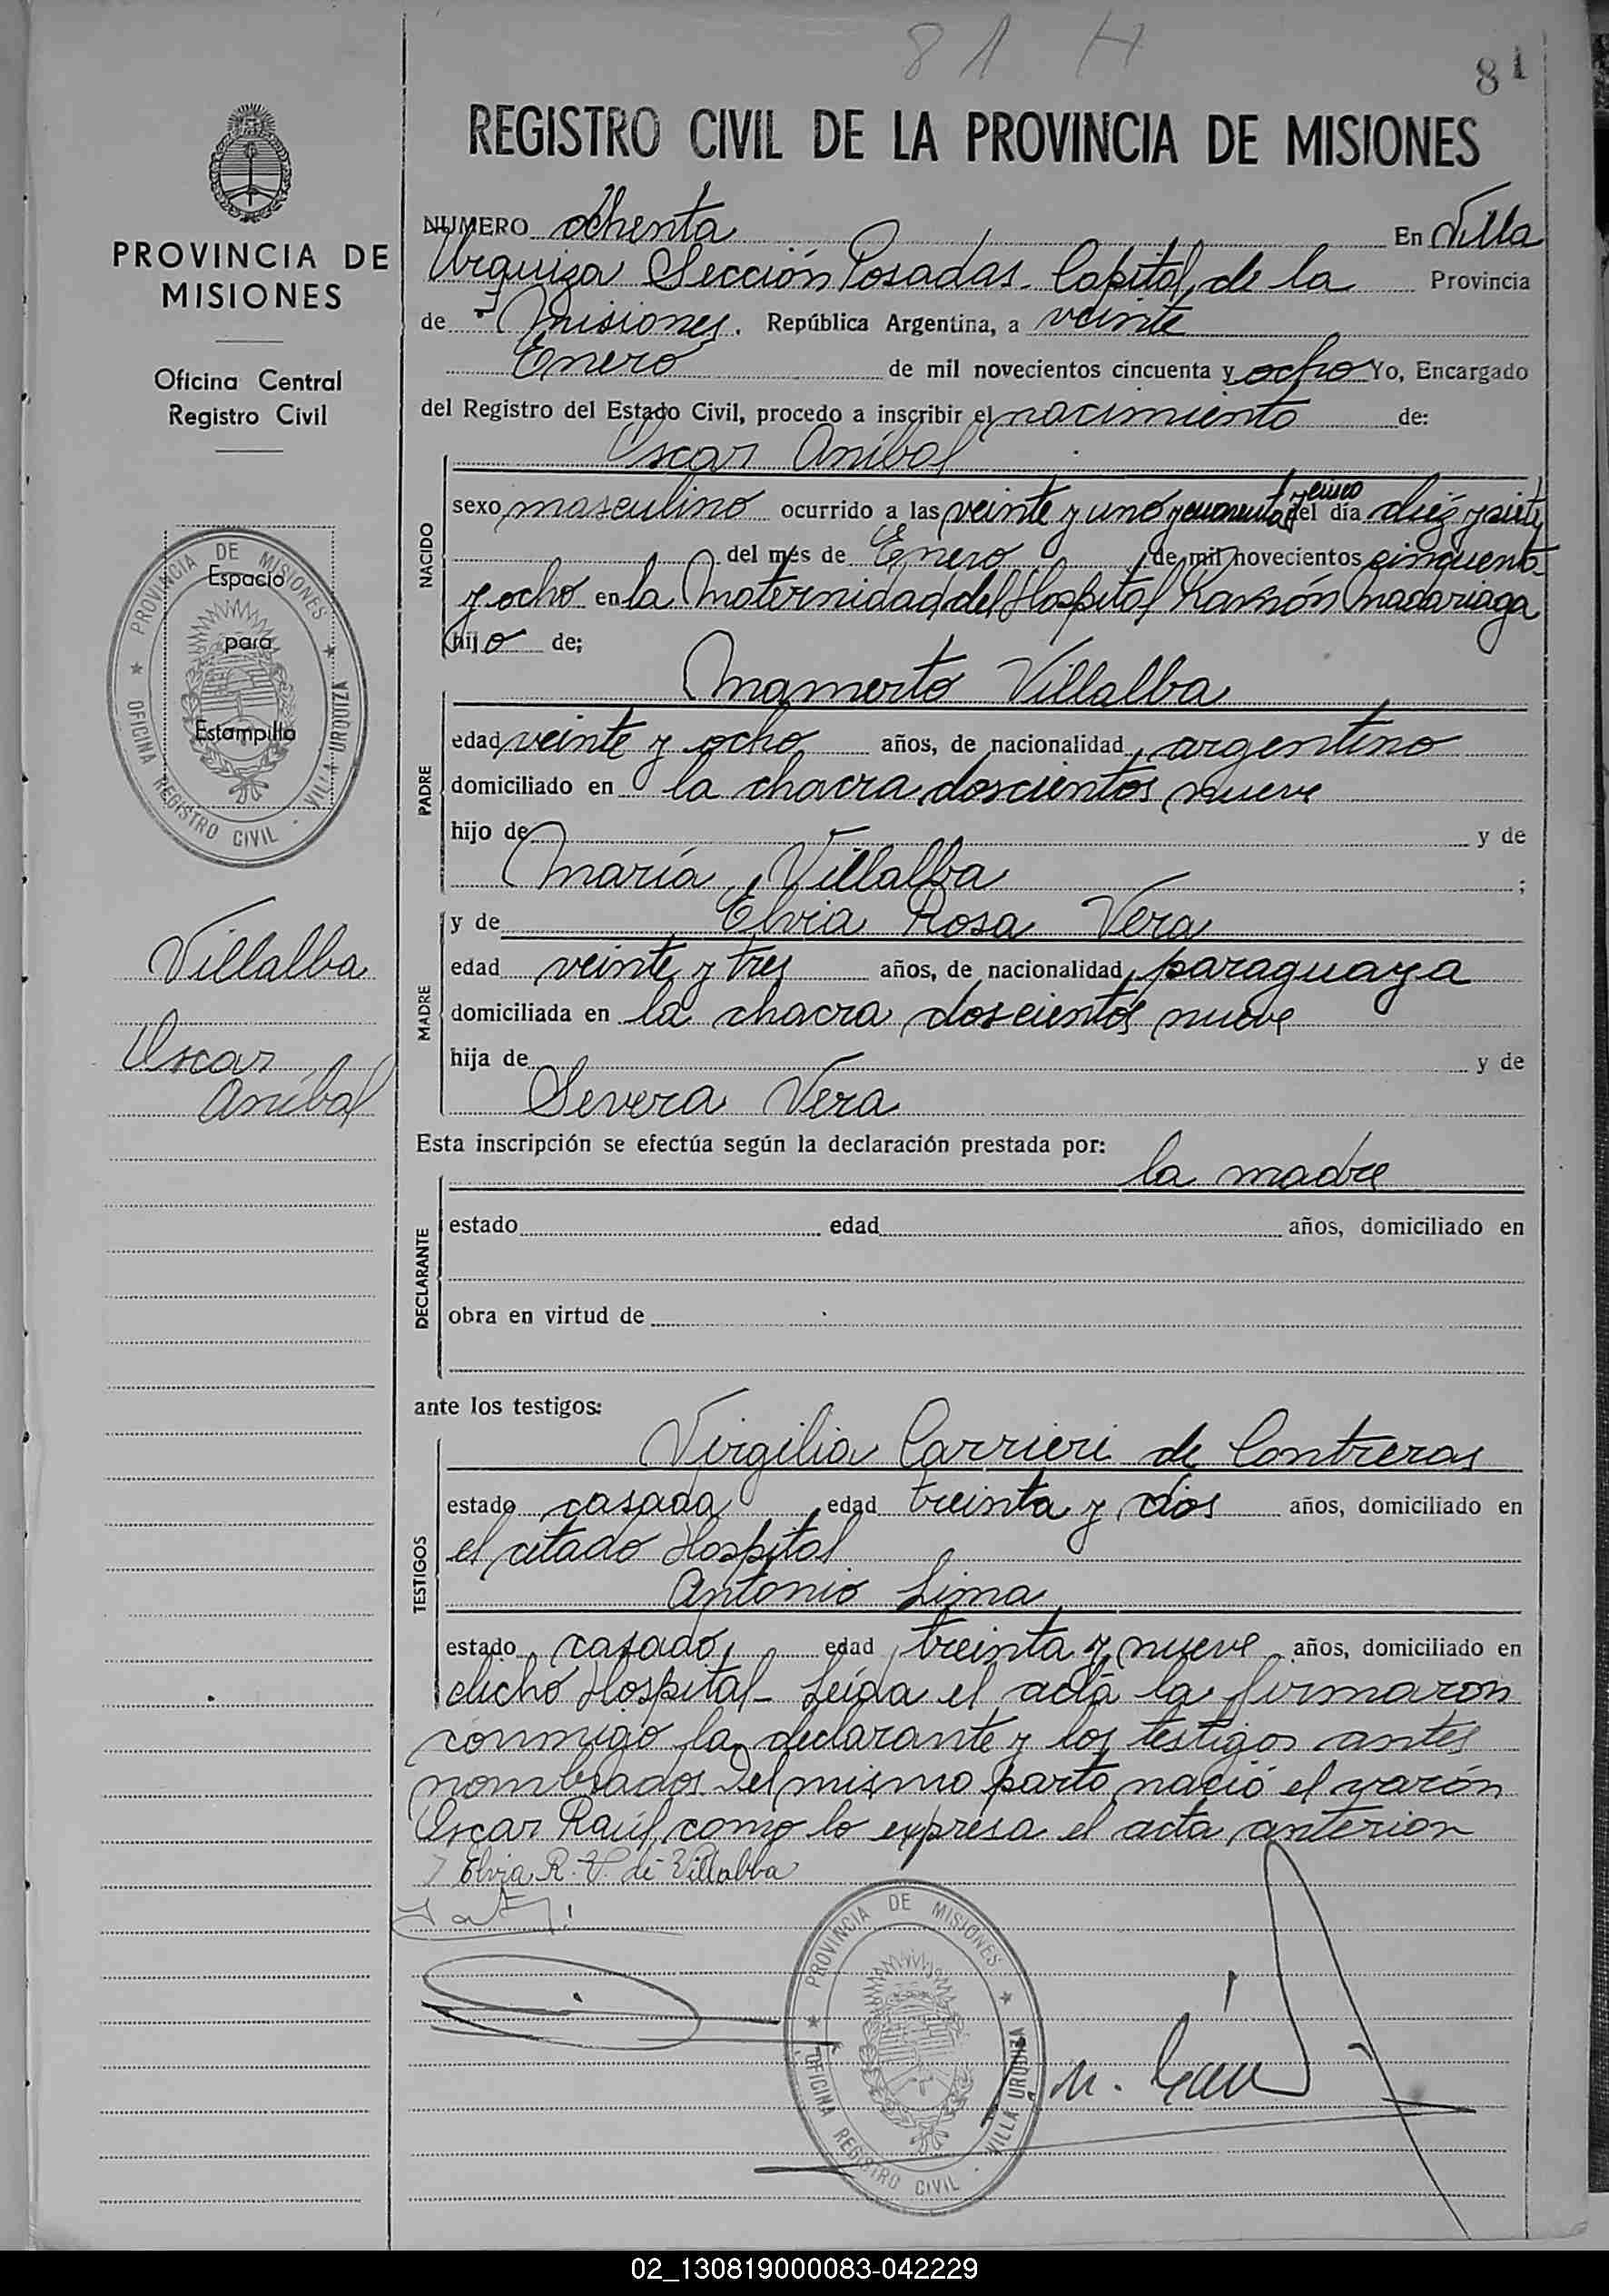 81 H
81
REGISTRO CIVIL DE LA PROVINCIA DE MISIONES
PROVINCIA DE
MISIONES
Oficina Central
Registro Civil
PROVINCIA DE MISIONES ★ VILLA URQUIZA · OFICINA REGISTRO CIVIL ★
Espacio
para
Estampilla
Villalba
Oscar
Aníbal
NUMERO ochenta En Villa
Urquiza Sección Posadas - Capital de la Provincia
de Misiones. República Argentina, a veinte
Enero de mil novecientos cincuenta y ocho Yo, Encargado
del Registro del Estado Civil, procedo a inscribir el nacimiento de:
Oscar Aníbal
NACIDO
sexo masculino ocurrido a las veinte y uno y cuarenta y cinco del día diez y siete
del mes de Enero de mil novecientos cincuenta
y ocho en la Maternidad del Hospital Ramón Madariaga
hijo de;
Mamerto Villalba
PADRE
edad veinte y ocho años, de nacionalidad argentino
domiciliado en la chacra doscientos nueve
hijo de y de
María Villalba ;
y de Elvia Rosa Vera
MADRE
edad veinte y tres años, de nacionalidad paraguaya
domiciliada en la chacra doscientos nueve
hija de y de
Severa Vera
Esta inscripción se efectúa según la declaración prestada por:
la madre
DECLARANTE
estado edad años, domiciliado en
obra en virtud de
ante los testigos:
Virgilia Carrieri de Contreras
TESTIGOS
estado casada edad treinta y dos años, domiciliado en
el citado Hospital
Antonio Lima
estado casado, edad treinta y nueve años, domiciliado en
dicho Hospital - Leída el acta la firmaron
conmigo la declarante y los testigos antes
nombrados. Del mismo parto nació el varón
Oscar Raúl, como lo expresa el acta anterior
Elvia R. V. de Villalba
PROVINCIA DE MISIONES ★ VILLA URQUIZA · OFICINA REGISTRO CIVIL ★
02_130819000083-042229